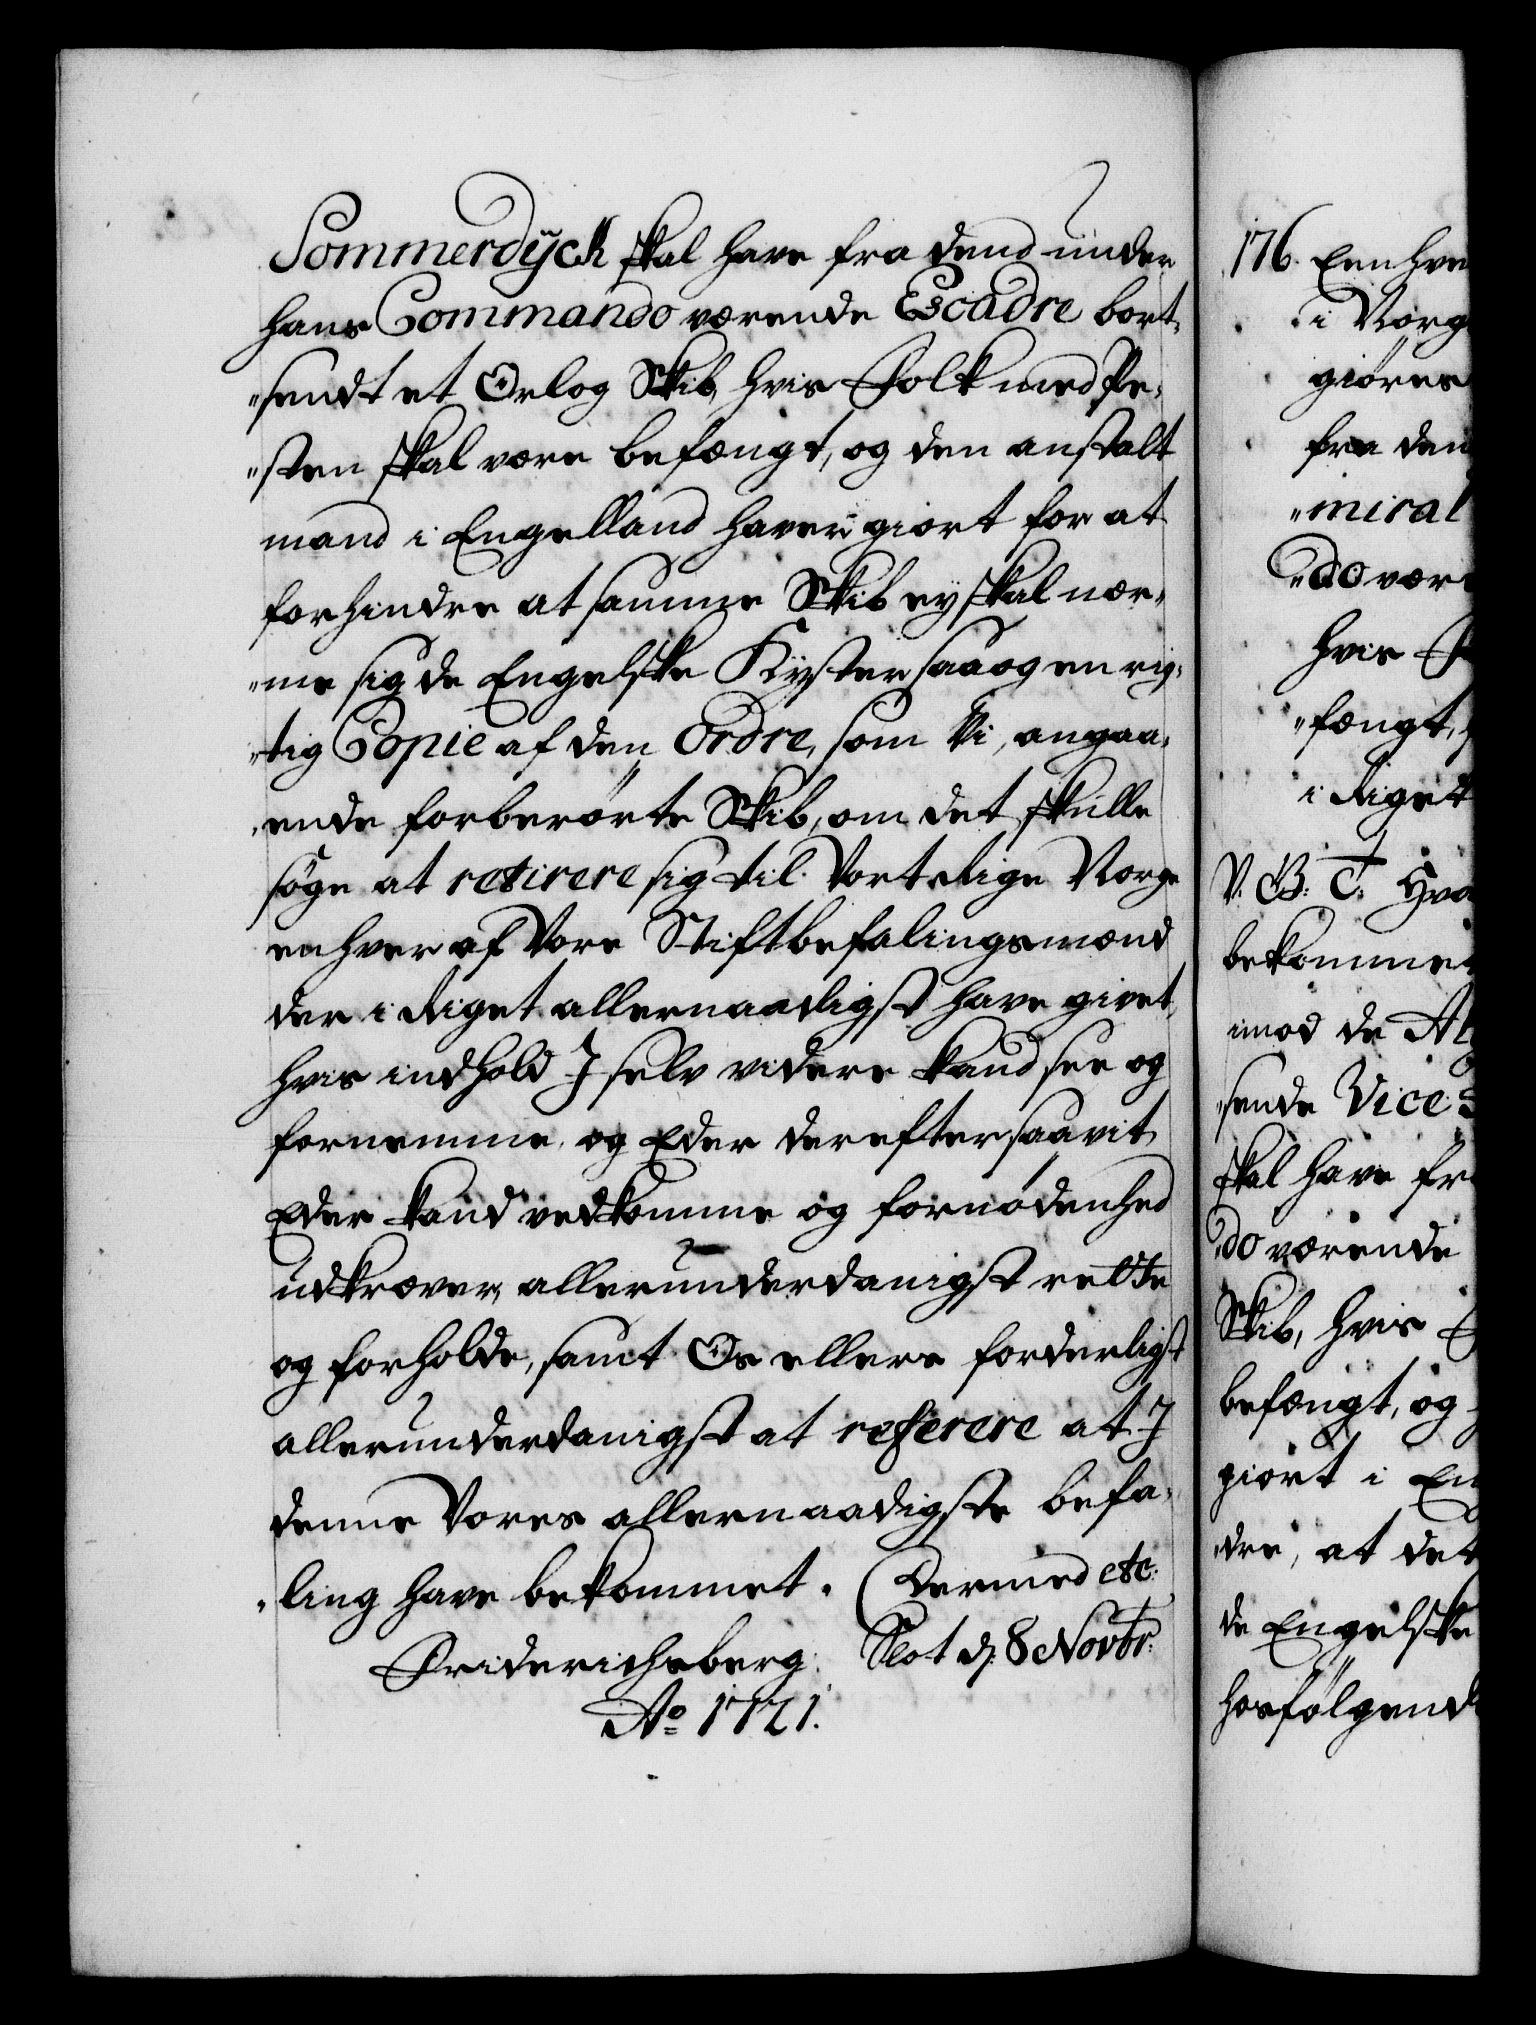 Sommerdÿck skal have fra dend under
hans Commando værende Escadre bort-
"sendt et Orlog Skib, hvis Folk med Pe-
"sten skal være befængt, og den anstalt
mand i Engelland haver giort for at
forhindre at samme Skib ey skal nær-
"me sig de Engelske Kyster saa og en rig-
"tig Copie af den Ordre, som Vi, angaa-
"ende forberørte Skib, om det skulle
søge at retirere sig til Vort Rige Norge
enhver af Vore Stiftbefalingsmænd
der i Riget allernaadigst have givet,
hvis indhold I self videre kand see og
fornemme, og Eder derefter, saavit
Eder kand vedkomme og fornødenhed
udkræver, allerunderdanigst rette
og forholde, samt Os ellers forderligst
allerunderdanigst at referere at I
denne Vores allernaadigste befa-
"ling have bekommet. Dermed etc:
Friderichsberg Slot d: 8 Novbr:
Ao 1721.
176. Een hve
i Norg
giøres
fra den
"miral
"do vær
hvis F
"fængt,
i Riget
V: G: T: Hva
bekommet
imod de Al
"sende Vice S
skal have fra
"do værende
Skib, hvis F
befængt, og
giort i En
"dre, at det
de Engelske
hosfølgend